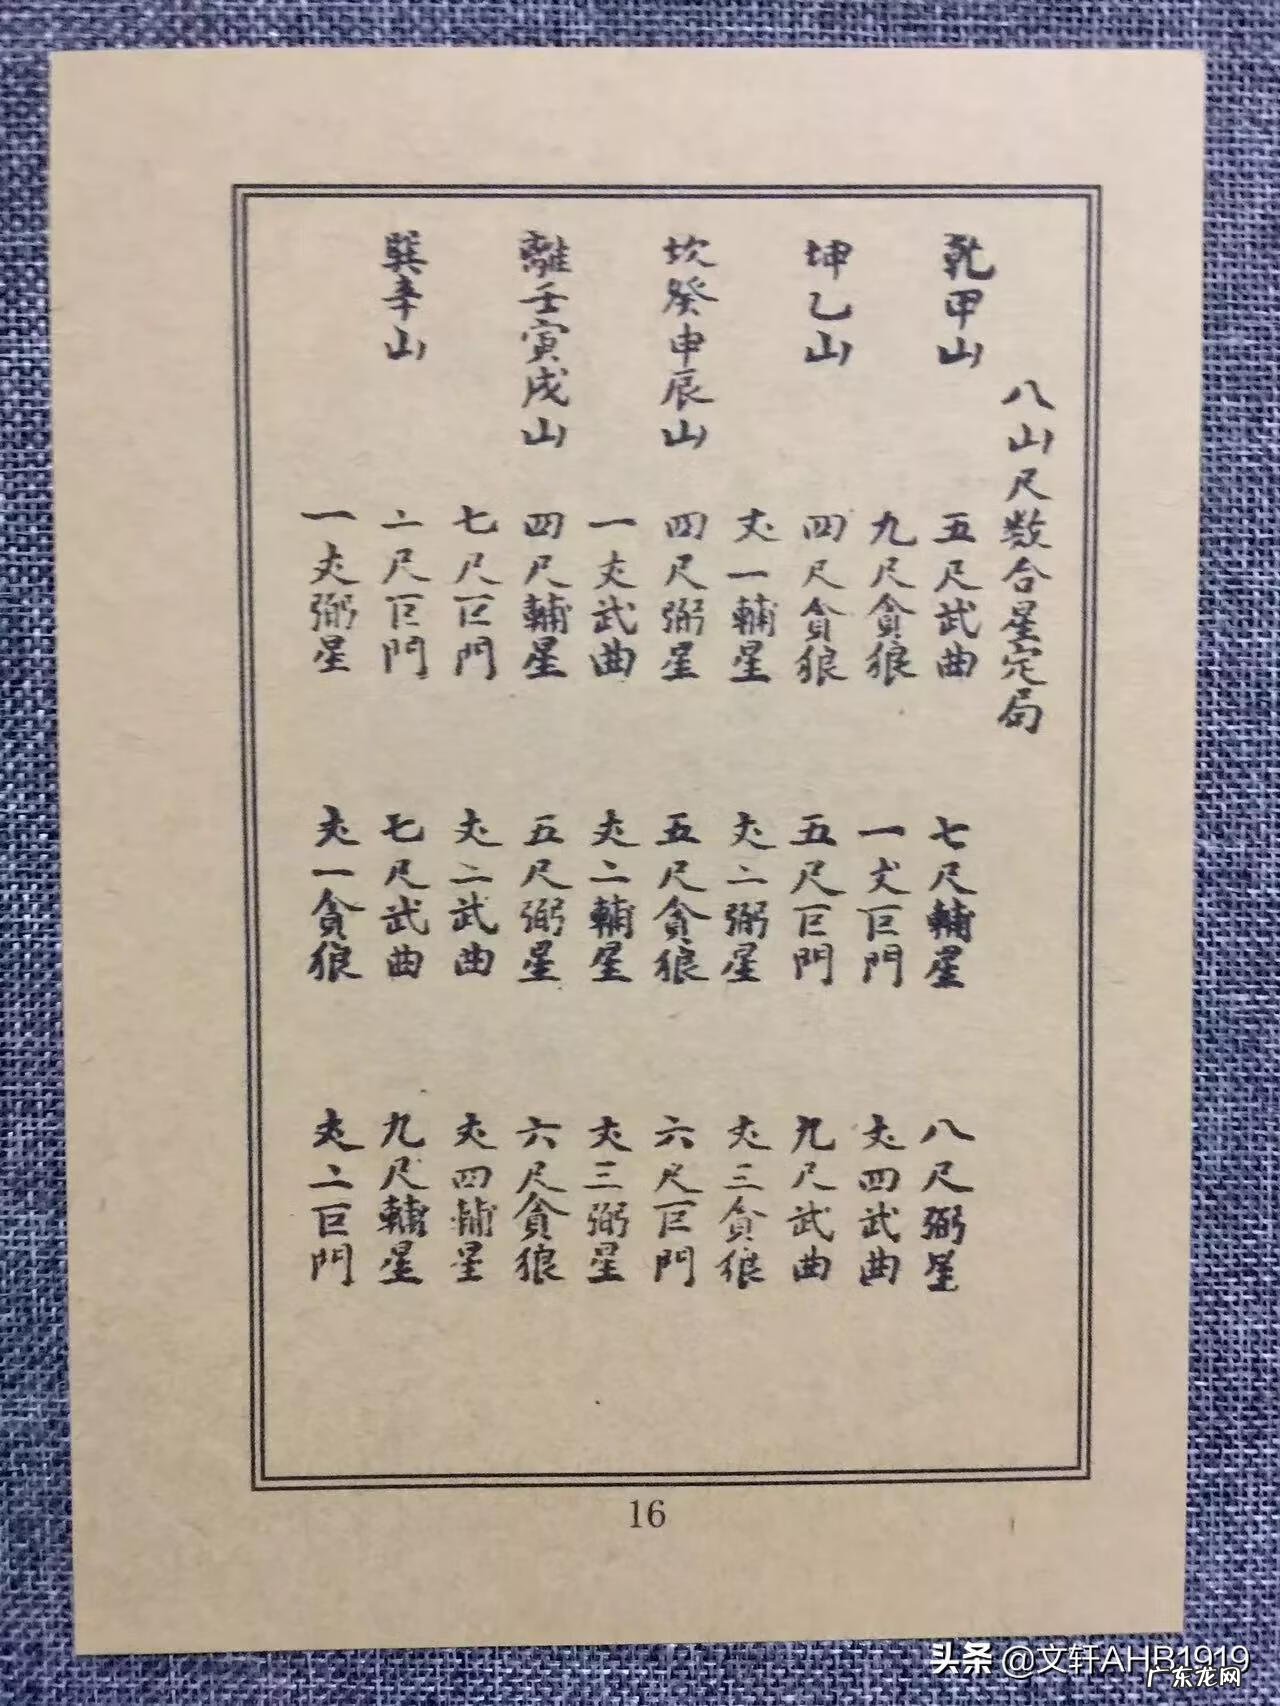 八山尺数合星定局
乾甲山 五尺武曲 七尺輔星 八尺弼星
九尺貪狼 一丈巨門 丈四武曲
坤乙山 四尺貪狼 五尺巨門 九尺武曲
丈一輔星 丈二弼星 丈三貪狼
坎癸申辰山 四尺弼星 五尺貪狼 六尺巨門
一丈武曲 丈二輔星 丈三弼星
離壬寅戌山 四尺輔星 五尺弼星 六尺貪狼
七尺巨門 丈二武曲 丈四輔星
巽辛山 二尺巨門 七尺武曲 九尺輔星
一丈弼星 丈一貪狼 丈二巨門
16
头条 @文轩AHB1919
广东龙网